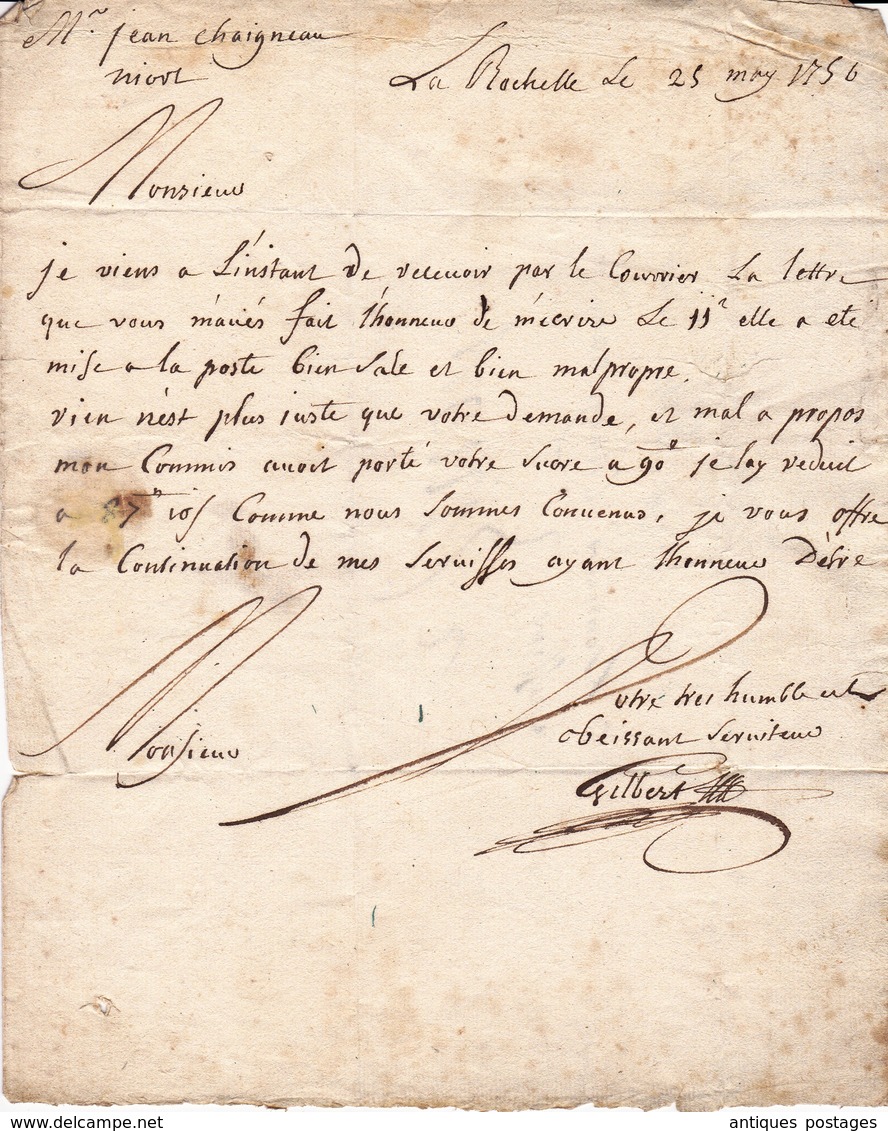 Mr. jean Chaigneau
niort
La Rochelle Le 25 may 1756
Monsieur
je viens a L'instant de recevoir par le Courrier La lettre
que vous m'avés fait l'honneur de m'ecrire Le 11e elle a eté
mise a la poste bien Sale et bien malpropre.
rien n'est plus juste que votre demande, et mal a propos
mon Commis avoit porté votre Sucre a 90ll je lay reduit
a 87ll 10s Comme nous Sommes Convenus, je vous offre
la Continuation de mes Servisses ayant lhonneur D'etre
Monsieur
Votre tres humble et
obeissant Serviteur
Gilbert
www.delcampe.net
antiques postages